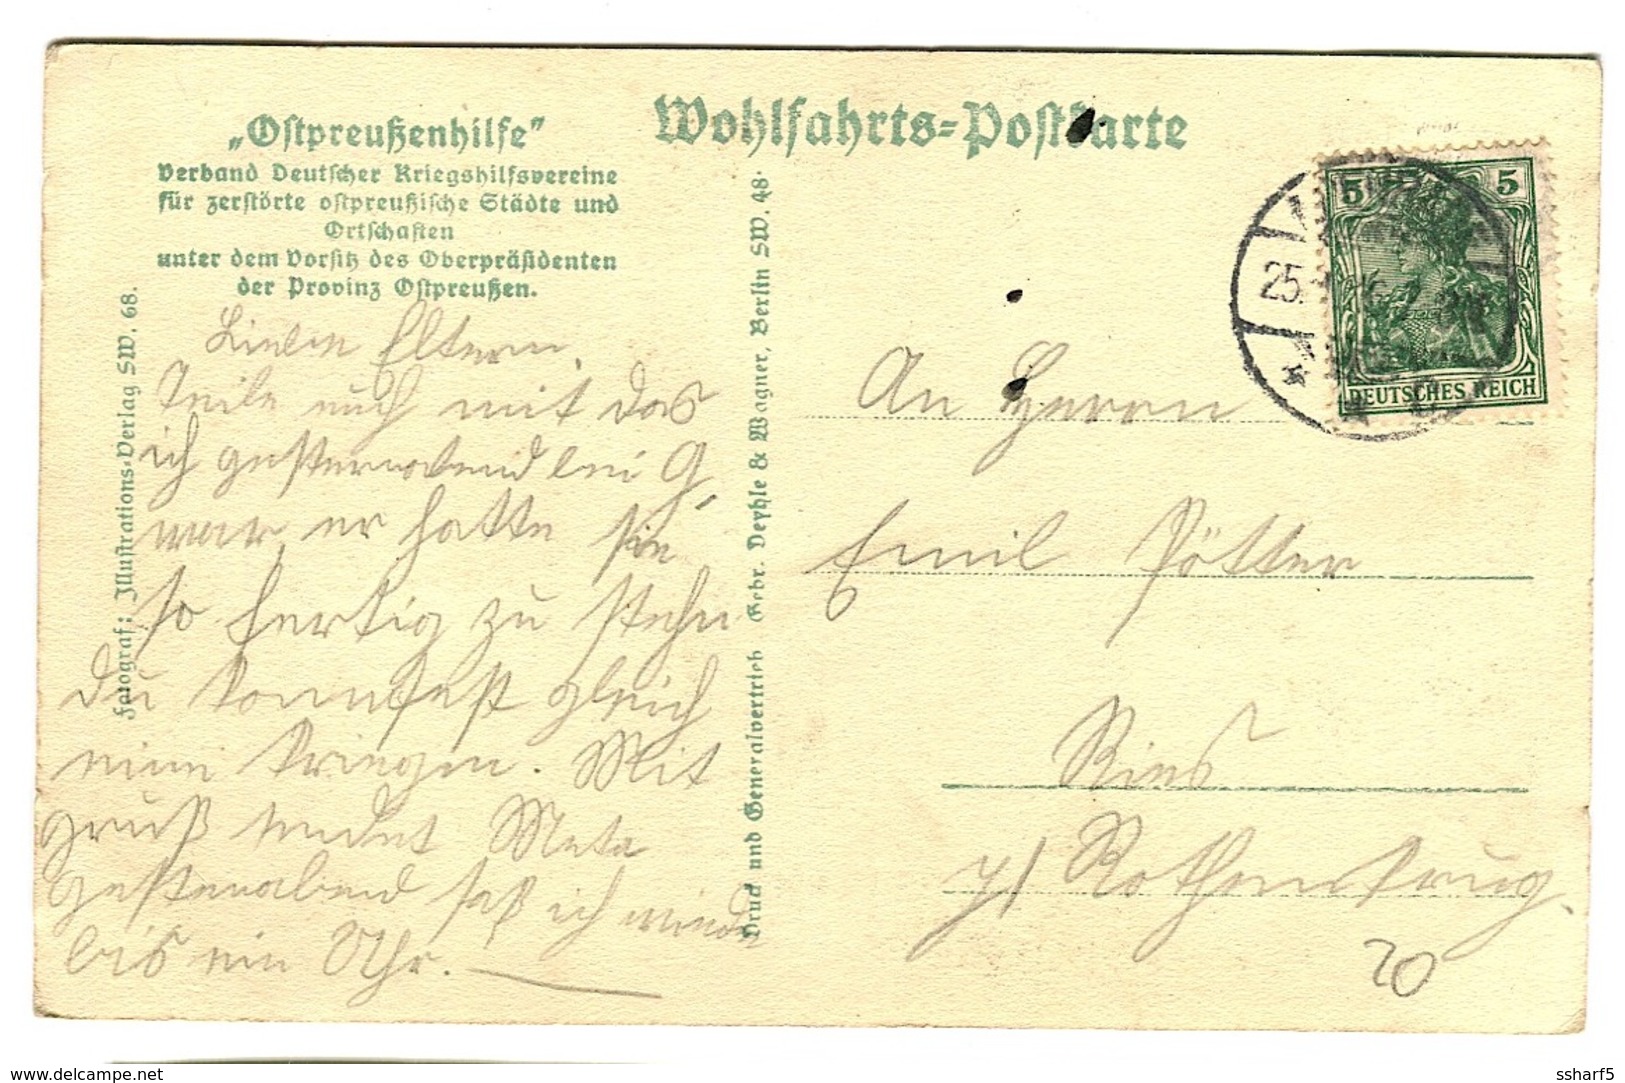 „Ostpreußenhilfe"
Verband Deutscher Kriegshilfsvereine
für zerstörte ostpreußische Städte und
Ortschaften
unter dem Vorsitz des Oberpräsidenten
der Provinz Ostpreußen.
Wohlfahrts-Postkarte
Fotograf: Illustrations-Verlag SW. 68.
Druck und Generalvertrieb Gebr. Deyhle & Wagner, Berlin SW. 48.
5 5
DEUTSCHES REICH
25.
Lieben Eltern,
Teile euch mit das
ich gesternabend bei G.
war, er hatte sie
so fertig zu stehn
du konntest gleich
eine kriegen. Mit
Gruß sendet Meta
gesternabend saß ich wieder
bis ein Uhr.
An Herrn
Emil Pötter
Ries
p/ Rothenkrug.
20
ssharf5
delcampe.net